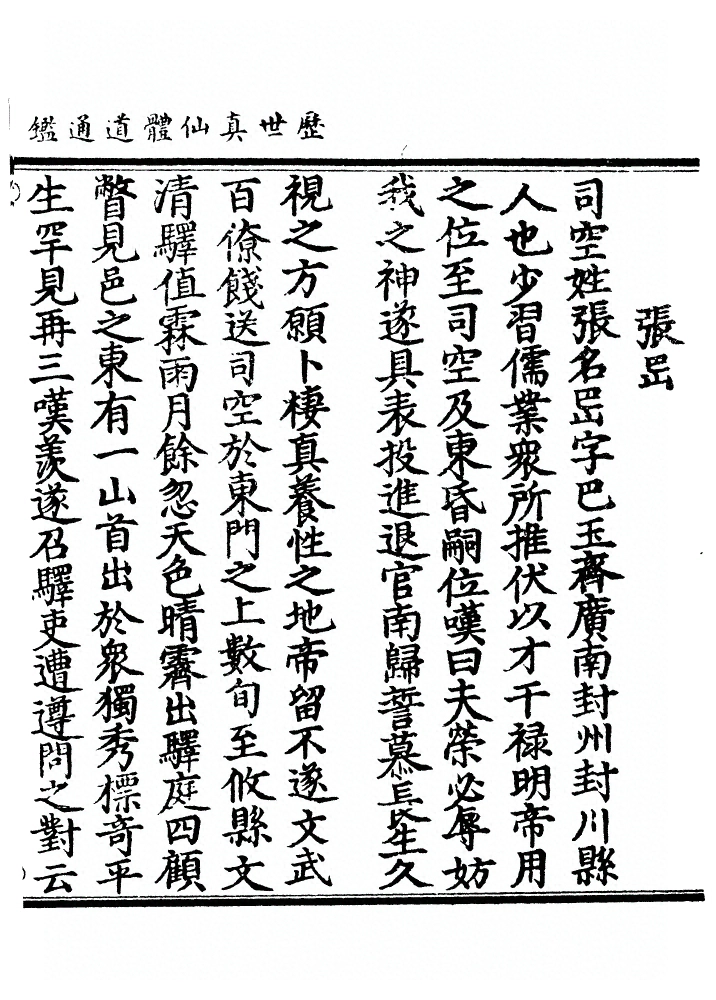 歷世真仙體道通鑑
張岊
司空姓張名岊字巴玉齊廣南封州封川縣
人也少習儒業衆所推伏以才干禄明帝用
之位至司空及東昏嗣位嘆曰夫榮必辱妨
我之神遂具表投進退官南歸誓慕長生久
視之方願卜棲真養性之地帝留不遂文武
百僚餞送司空於東門之上數旬至攸縣文
清驛值霖雨月餘忽天色晴霽出驛庭四顧
瞥見邑之東有一山首出於衆獨秀標奇平
生罕見再三嘆羨遂召驛吏遭遵問之對云